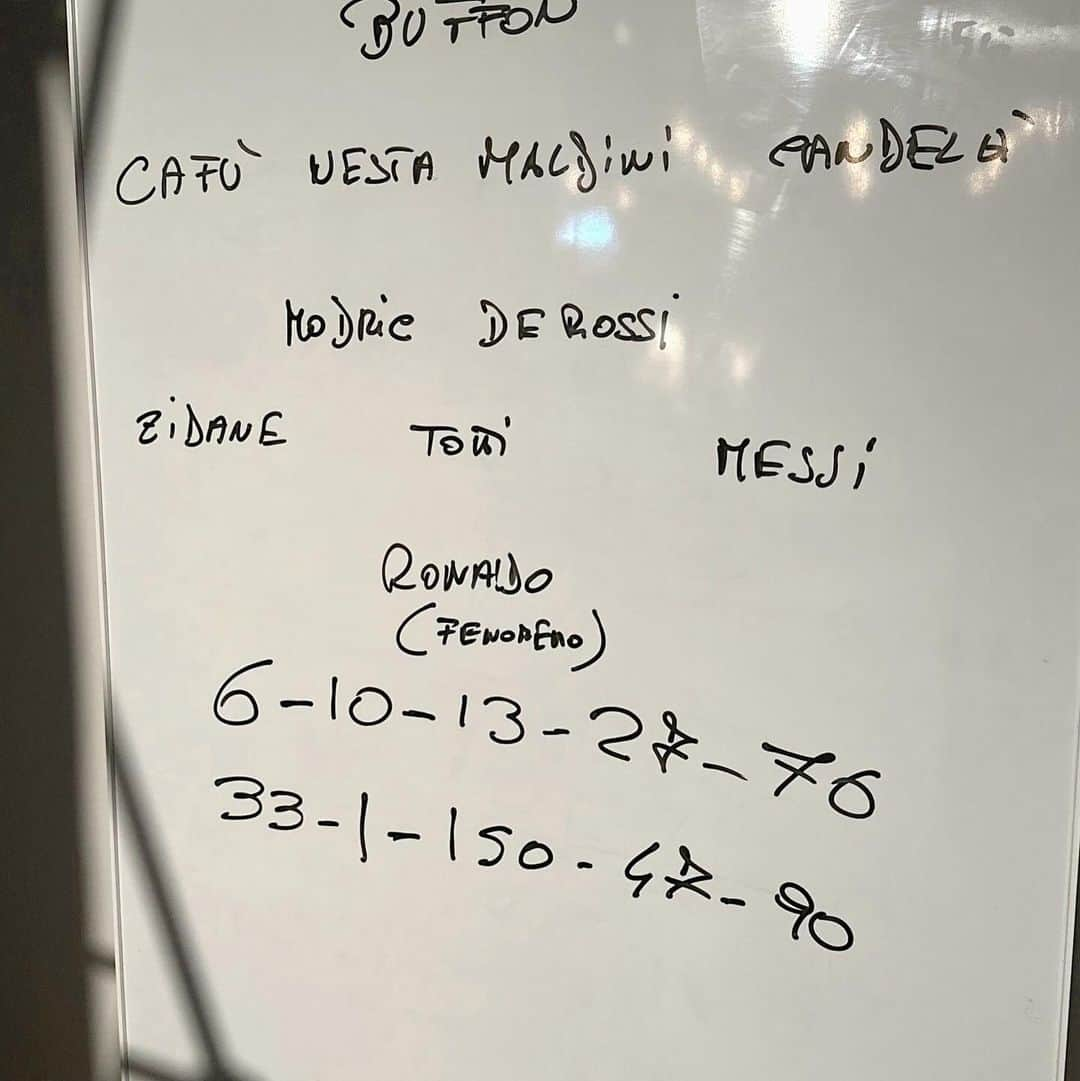 BUFFON
CAFÙ NESTA MALDINI CANDELÀ
MODRIC DE ROSSI
ZIDANE TOTTI MESSI
RONALDO
(FENOMENO)
6-10-13-27-76
33-1-150-47-90